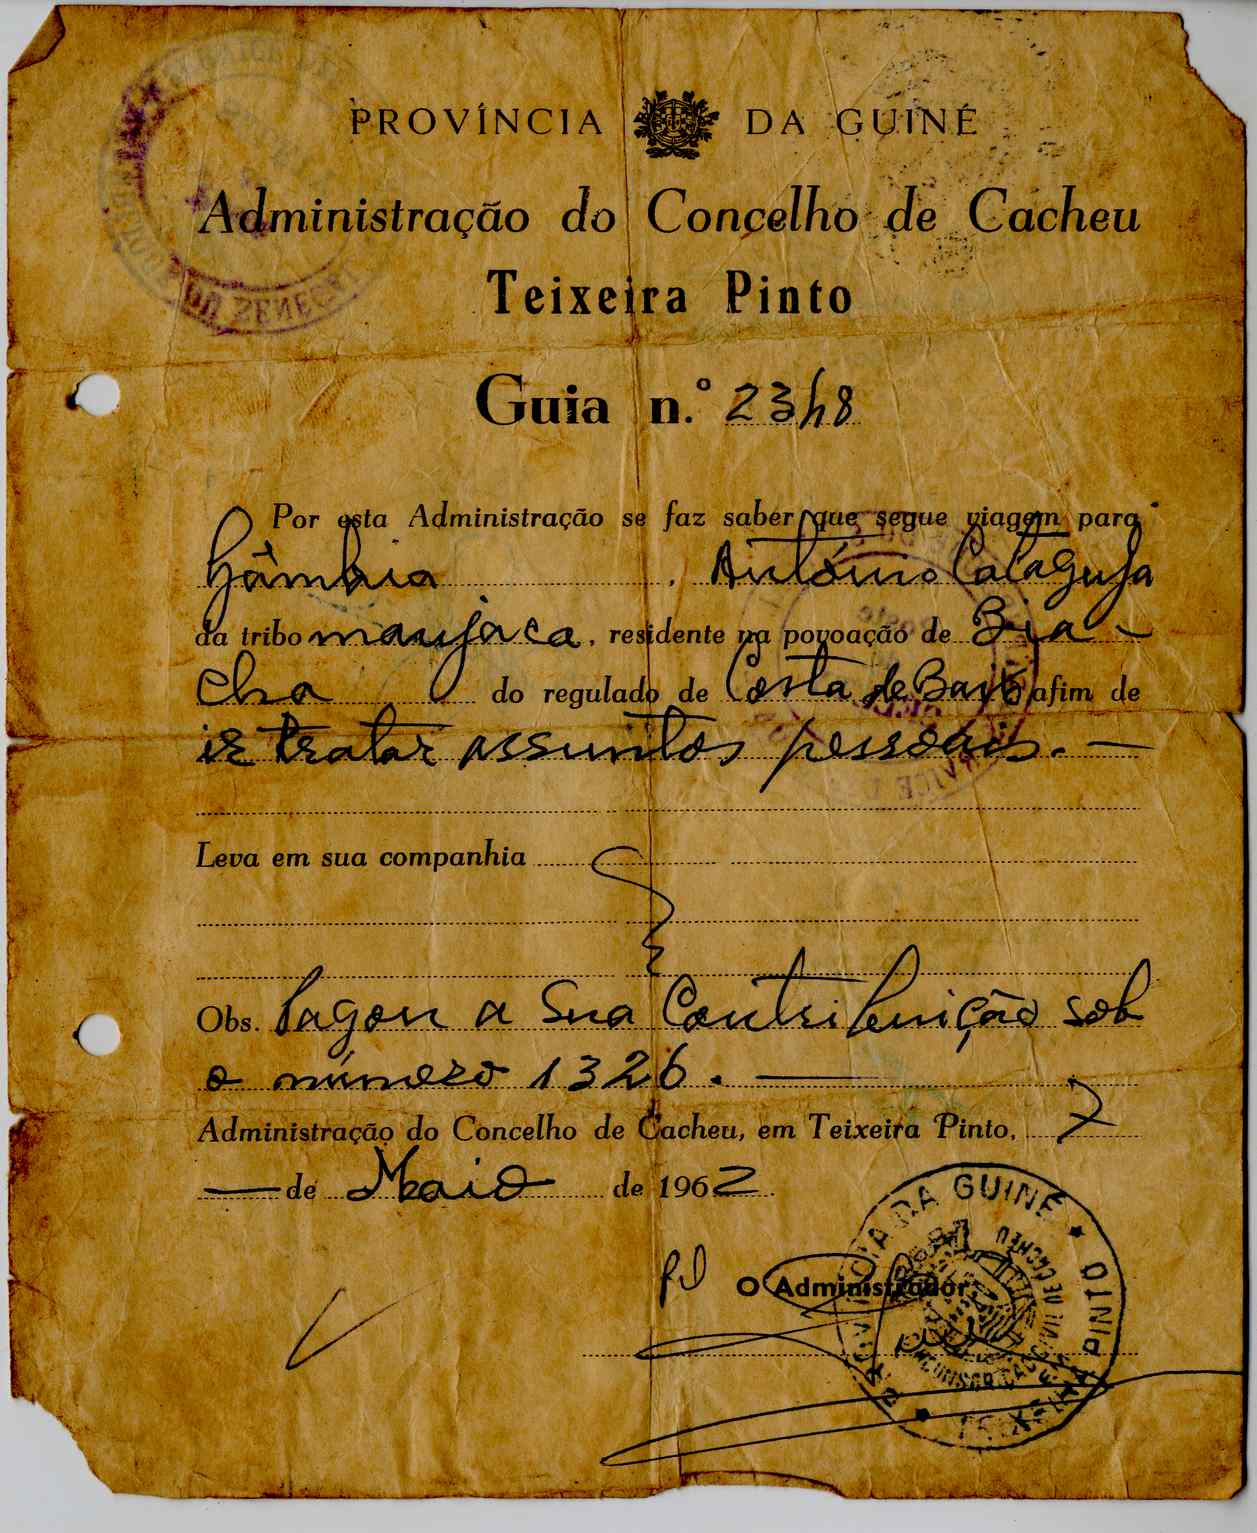 PROVÍNCIA DA GUINÉ
Administração do Concelho de Cacheu
Teixeira Pinto
Guia n.º 2348
Por esta Administração se faz saber que segue viagem para
Gâmbia, António Catagufa
da tribo manjaca, residente na povoação de Bia-
cha do regulado de Costa de Baixo afim de
ir tratar assuntos pessoais. —
Leva em sua companhia
Obs. Pagou a sua Contribuição sob
o número 1326. —
Administração do Concelho de Cacheu, em Teixeira Pinto, 7
— de Maio de 1962
O Administrador
PROVÍNCIA DA GUINÉ ★ TEIXEIRA PINTO ★
DU SENEGAL